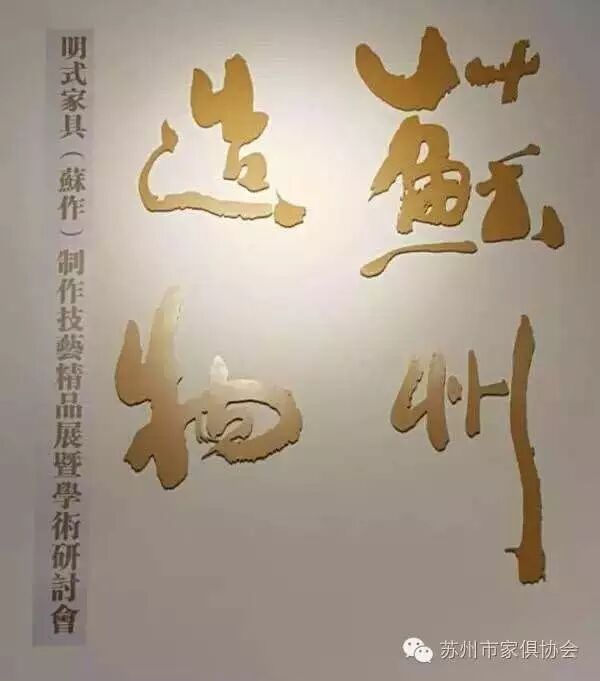 蘇州
造物
明式家具（蘇作）制作技藝精品展暨學術研討會
苏州市家俱协会